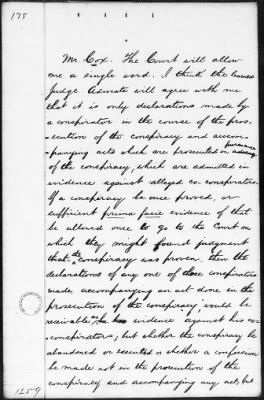 175
Mr. Cox. The Court will allow
me a single word. I think the learned
Judge Advocate will agree with me
that it is only declarations made by
a conspirator in the course of the pros-
ecution of the conspiracy and accom-
panying acts which are prosecuted in pursuance
of the conspiracy, which are admitted in
evidence against alleged co-conspirators.
If a conspiracy be once proved, or
sufficient prima facie evidence of that
be allowed once to go to the Court on
which they might found judgment
that the conspiracy was proven, then the
declarations of any one of those conspirators
made accompanying an act done in the
prosecution of the conspiracy would be
receivable as evidence against his co-
conspirators; but whether the conspiracy be
abandoned or executed or whether a confession
be made not in the prosecution of the
conspiracy and accompanying any act, but
1259